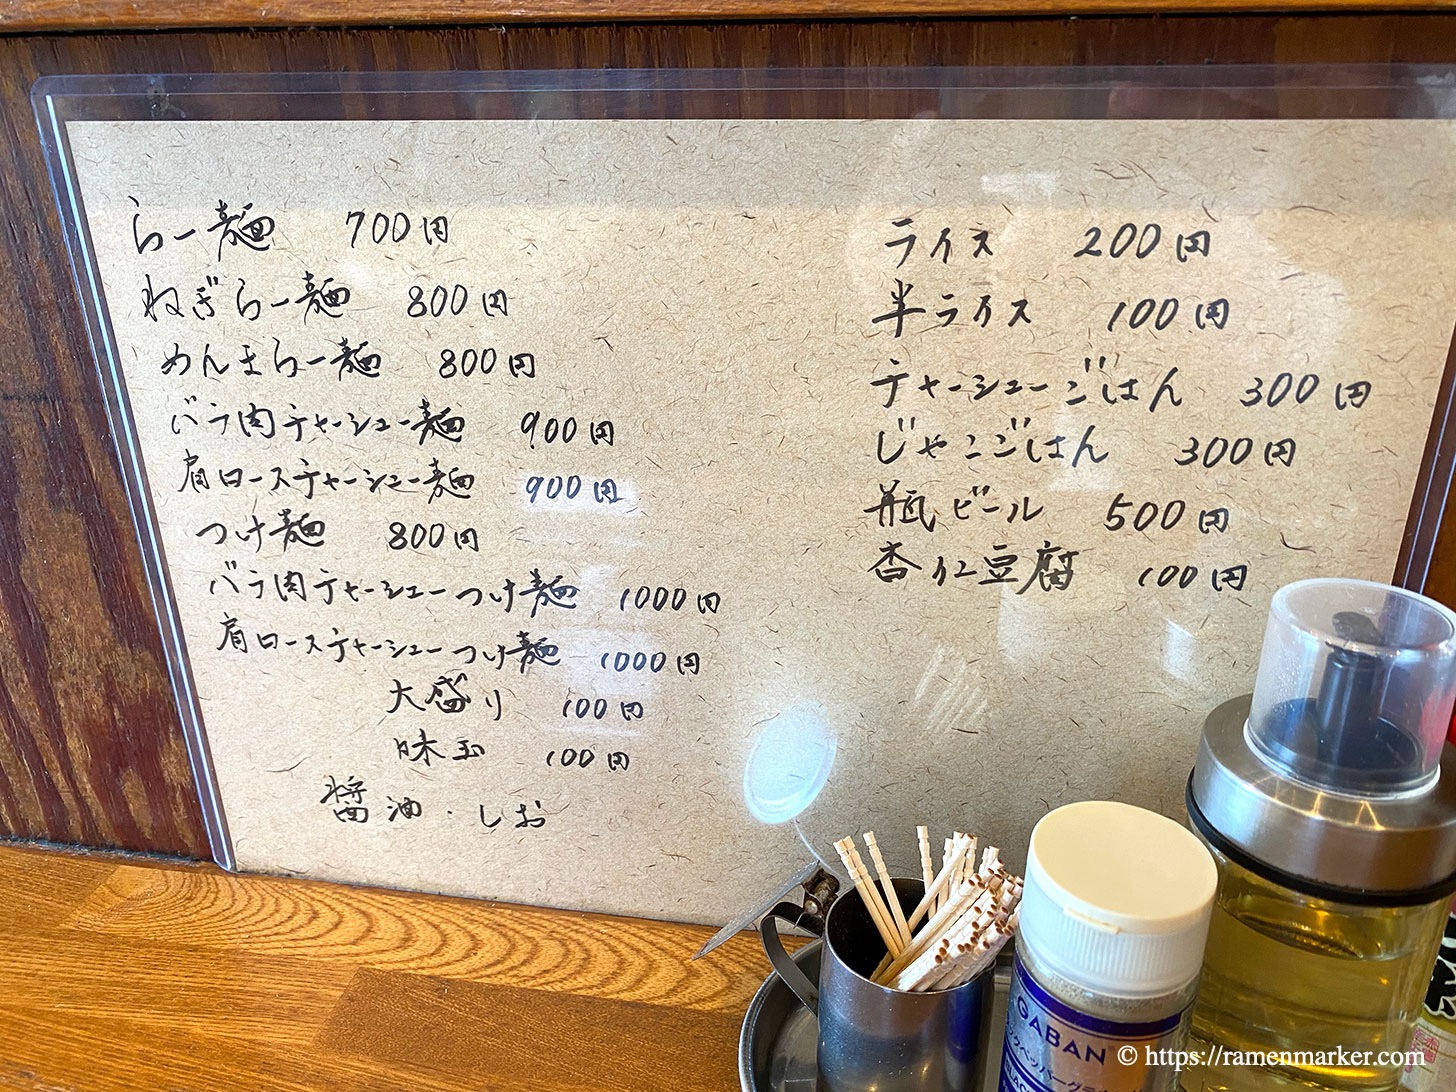 らー麺 700円
ねぎらー麺 800円
めんまらー麺 800円
バラ肉チャーシュー麺 900円
肩ロースチャーシュー麺 900円
つけ麺 800円
バラ肉チャーシューつけ麺 1000円
肩ロースチャーシューつけ麺 1000円
大盛り 100円
味玉 100円
醤油・しお
ライス 200円
半ライス 100円
チャーシューごはん 300円
じゃこごはん 300円
瓶ビール 500円
杏仁豆腐 100円
GABAN
© https://ramenmarker.com